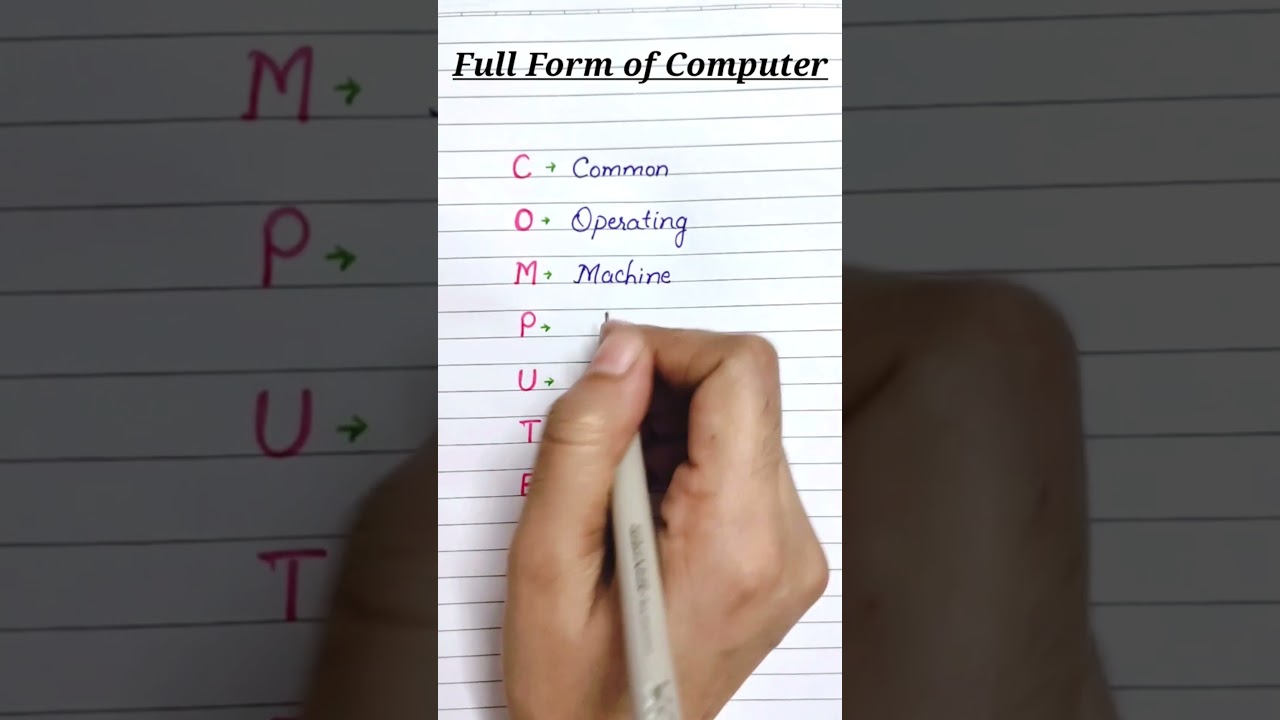 Full Form of Computer
C → Common
O → Operating
M → Machine
P →
U →
T
E
M →
P →
U →
T